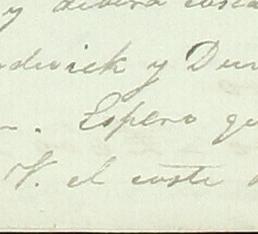 y deberá costa
dwick y Dur
Espero qu
V. el coste